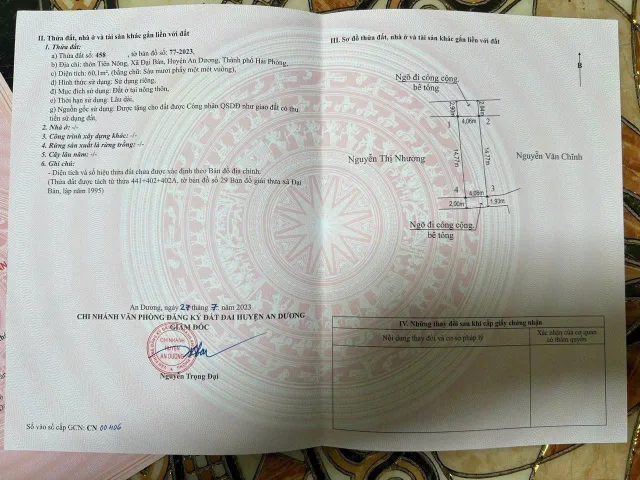 II. Thửa đất, nhà ở và tài sản khác gắn liền với đất
1. Thửa đất:
a) Thửa đất số: 458 , tờ bản đồ số: 77-2023,
b) Địa chỉ: thôn Tiên Nông, Xã Đại Bản, Huyện An Dương, Thành phố Hải Phòng,
c) Diện tích: 60,1m², (bằng chữ: Sáu mươi phẩy một mét vuông),
d) Hình thức sử dụng: Sử dụng riêng,
đ) Mục đích sử dụng: Đất ở tại nông thôn,
e) Thời hạn sử dụng: Lâu dài,
g) Nguồn gốc sử dụng: Được tặng cho đất được Công nhận QSDĐ như giao đất có thu
tiền sử dụng đất.
2. Nhà ở: -/-
3. Công trình xây dựng khác: -/-
4. Rừng sản xuất là rừng trồng: -/-
5. Cây lâu năm: -/-
6. Ghi chú:
- Diện tích và số hiệu thửa đất chưa được xác định theo Bản đồ địa chính.
(Thửa đất được tách từ thửa 441+402+402A, tờ bản đồ số 29 Bản đồ giải thửa xã Đại
Bản, lập năm 1995)
An Dương, ngày 27 tháng 7 năm 2023
CHI NHÁNH VĂN PHÒNG ĐĂNG KÝ ĐẤT ĐAI HUYỆN AN DƯƠNG
GIÁM ĐỐC
CHI NHÁNH
HUYỆN
AN DƯƠNG
Nguyễn Trọng Đại
Số vào sổ cấp GCN: CN 00406
III. Sơ đồ thửa đất, nhà ở và tài sản khác gắn liền với đất
B
Ngõ đi công cộng
bê tông
2,90m
2,84m
4,06m
1
2
14,77m
14,77m
Nguyễn Thị Nhương
Nguyễn Văn Chính
4
3
4,08m
2,00m
1,93m
Ngõ đi công cộng
bê tông
IV. Những thay đổi sau khi cấp giấy chứng nhận
Nội dung thay đổi và cơ sở pháp lý
Xác nhận của cơ quan
có thẩm quyền